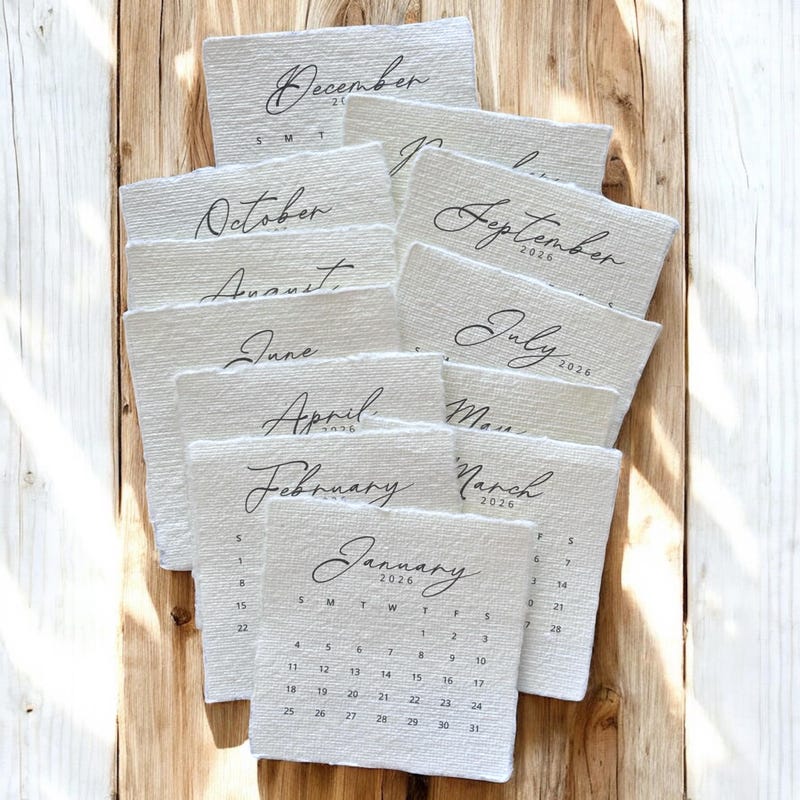 December
S M T
October
September
2026
August
June
July
2026
April
2026
May
February
March
2026
S
1
8
15
22
F S
6 7
14
21
28
January
2026
S M T W T F S
1 2 3
4 5 6 7 8 9 10
11 12 13 14 15 16 17
18 19 20 21 22 23 24
25 26 27 28 29 30 31